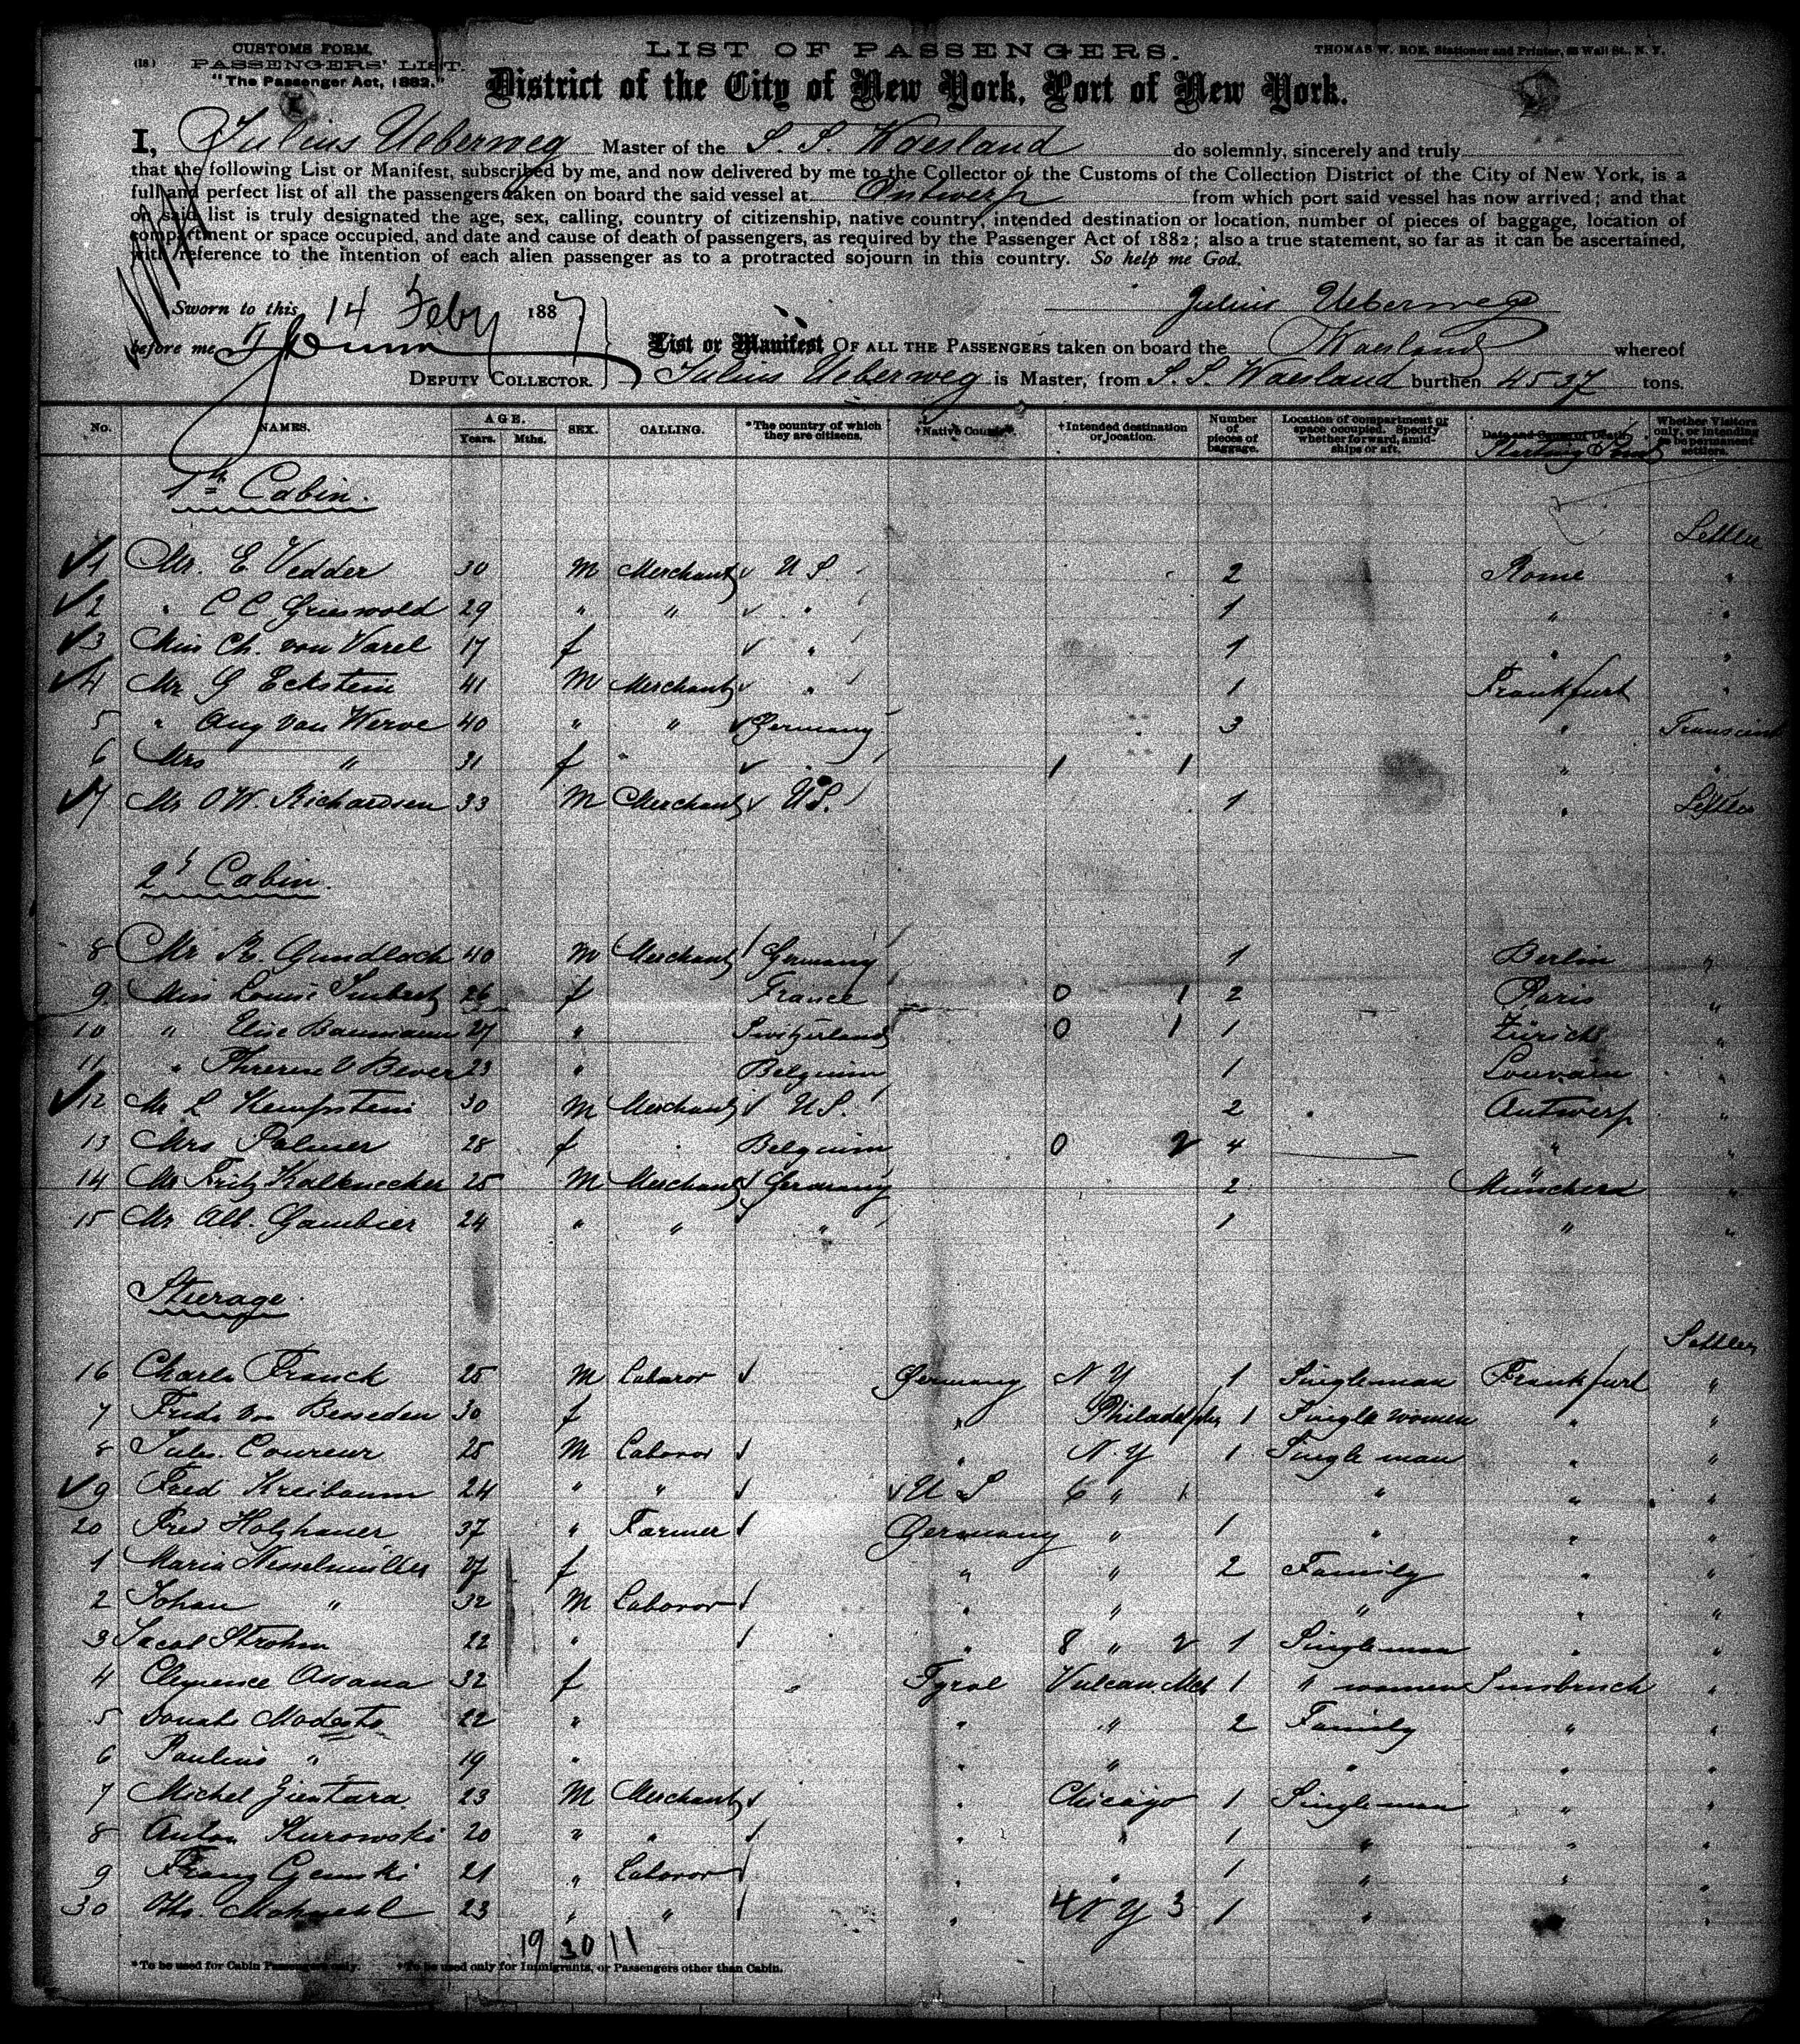 (18) CUSTOMS FORM. LIST OF PASSENGERS. THOMAS W. ROE, Stationer and Printer, Wall St., N. Y.
PASSENGERS' LIST.
"The Passenger Act, 1882." District of the City of New York, Port of New York.
I, Julius Ueberweg Master of the S. S. Waesland do solemnly, sincerely and truly
that the following List or Manifest, subscribed by me, and now delivered by me to the Collector of the Customs of the Collection District of the City of New York, is a
full and perfect list of all the passengers taken on board the said vessel at Antwerp from which port said vessel has now arrived; and that
on said list is truly designated the age, sex, calling, country of citizenship, native country, intended destination or location, number of pieces of baggage, location of
compartment or space occupied, and date and cause of death of passengers, as required by the Passenger Act of 1882; also a true statement, so far as it can be ascertained,
with reference to the intention of each alien passenger as to a protracted sojourn in this country. So help me God.
Sworn to this 14 Feby 1887 Julius Ueberweg
before me List or Manifest OF ALL THE PASSENGERS taken on board the Waesland whereof
DEPUTY COLLECTOR. Julius Ueberweg is Master, from S. S. Waesland burthen 4537 tons.
No. NAMES. AGE. Years. Mths. SEX. CALLING. *The country of which they are citizens. †Native Country. †Intended destination or location. Number of pieces of baggage. Location of compartment or space occupied. Specify whether forward, amidships or aft. Date and Cause of Death. Whether Visitors only, or intending to be permanent settlers.
1st Cabin.
Settler
1 Mr. E Vedder 30 M Merchant U S. 2 Rome "
2 " C C Griswold 29 " " " 1 " "
3 Miss Ch. von Varel 17 f " 1 " "
4 Mr G Eckstein 41 M Merchant " 1 Frankfurt "
5 " Aug van Werve 40 " " Germany 3 " Transient
6 Mrs " 31 f " 1 1 " "
7 Mr O W. Richardson 33 M Merchant U.S. 1 " Settler
2d Cabin.
8 Mr R. Gundlach 40 M Merchant Germany 1 Berlin "
9 Miss Louise Imbert 26 f France 0 1 2 Paris "
10 " Elise Baumann 27 " Switzerland 0 1 1 Zürich "
11 " 23 " Belgium 1 Louvain "
12 Mr L Kempstein 30 M Merchant U S. 2 Antwerp "
13 Mrs Palmer 28 f Belgium 0 2 4 " "
14 Mr Fritz Kalknecker 25 M Merchant Germany 2 München "
15 Mr Alb. Gambier 24 " " " 1 " "
Sterage.
Settler
16 Charles Franck 25 M Laboror Germany N Y 1 Single man Frankfurt "
7 Frida von Benseden 30 f " Philadelphia 1 Single women " "
8 Jules. Coureur 25 M Laboror " N. Y 1 Single man " "
9 Fred Kreibaum 24 " " U S 6 " 1 " " "
20 Fred Holzhauer 37 " Farmer Germany " 1 " " "
1 Maria Nesselmüller 27 f " " 2 Family " "
2 Johan " 32 M Laboror " " " " "
3 Jacob Strohm 22 " " 8 " 2 1 Single man " "
4 Clemence Ossana 32 f Tyrol Vulcan. Mch 1 " women Innsbruck "
5 Donato Modesto 22 " " " 2 Family " "
6 Paulino " 19 " " " " " "
7 Michel Zientara 23 M Merchant " Chicago 1 Single man " "
8 Anton Kurowski 20 " " " " 1 " " "
9 Franz 21 " Laboror " " 1 " " "
30 Otto. 23 " " " 4 N Y 3 1 " "
19 30 11
*To be used for Cabin Passengers only. †To be used only for Immigrants, or Passengers other than Cabin.